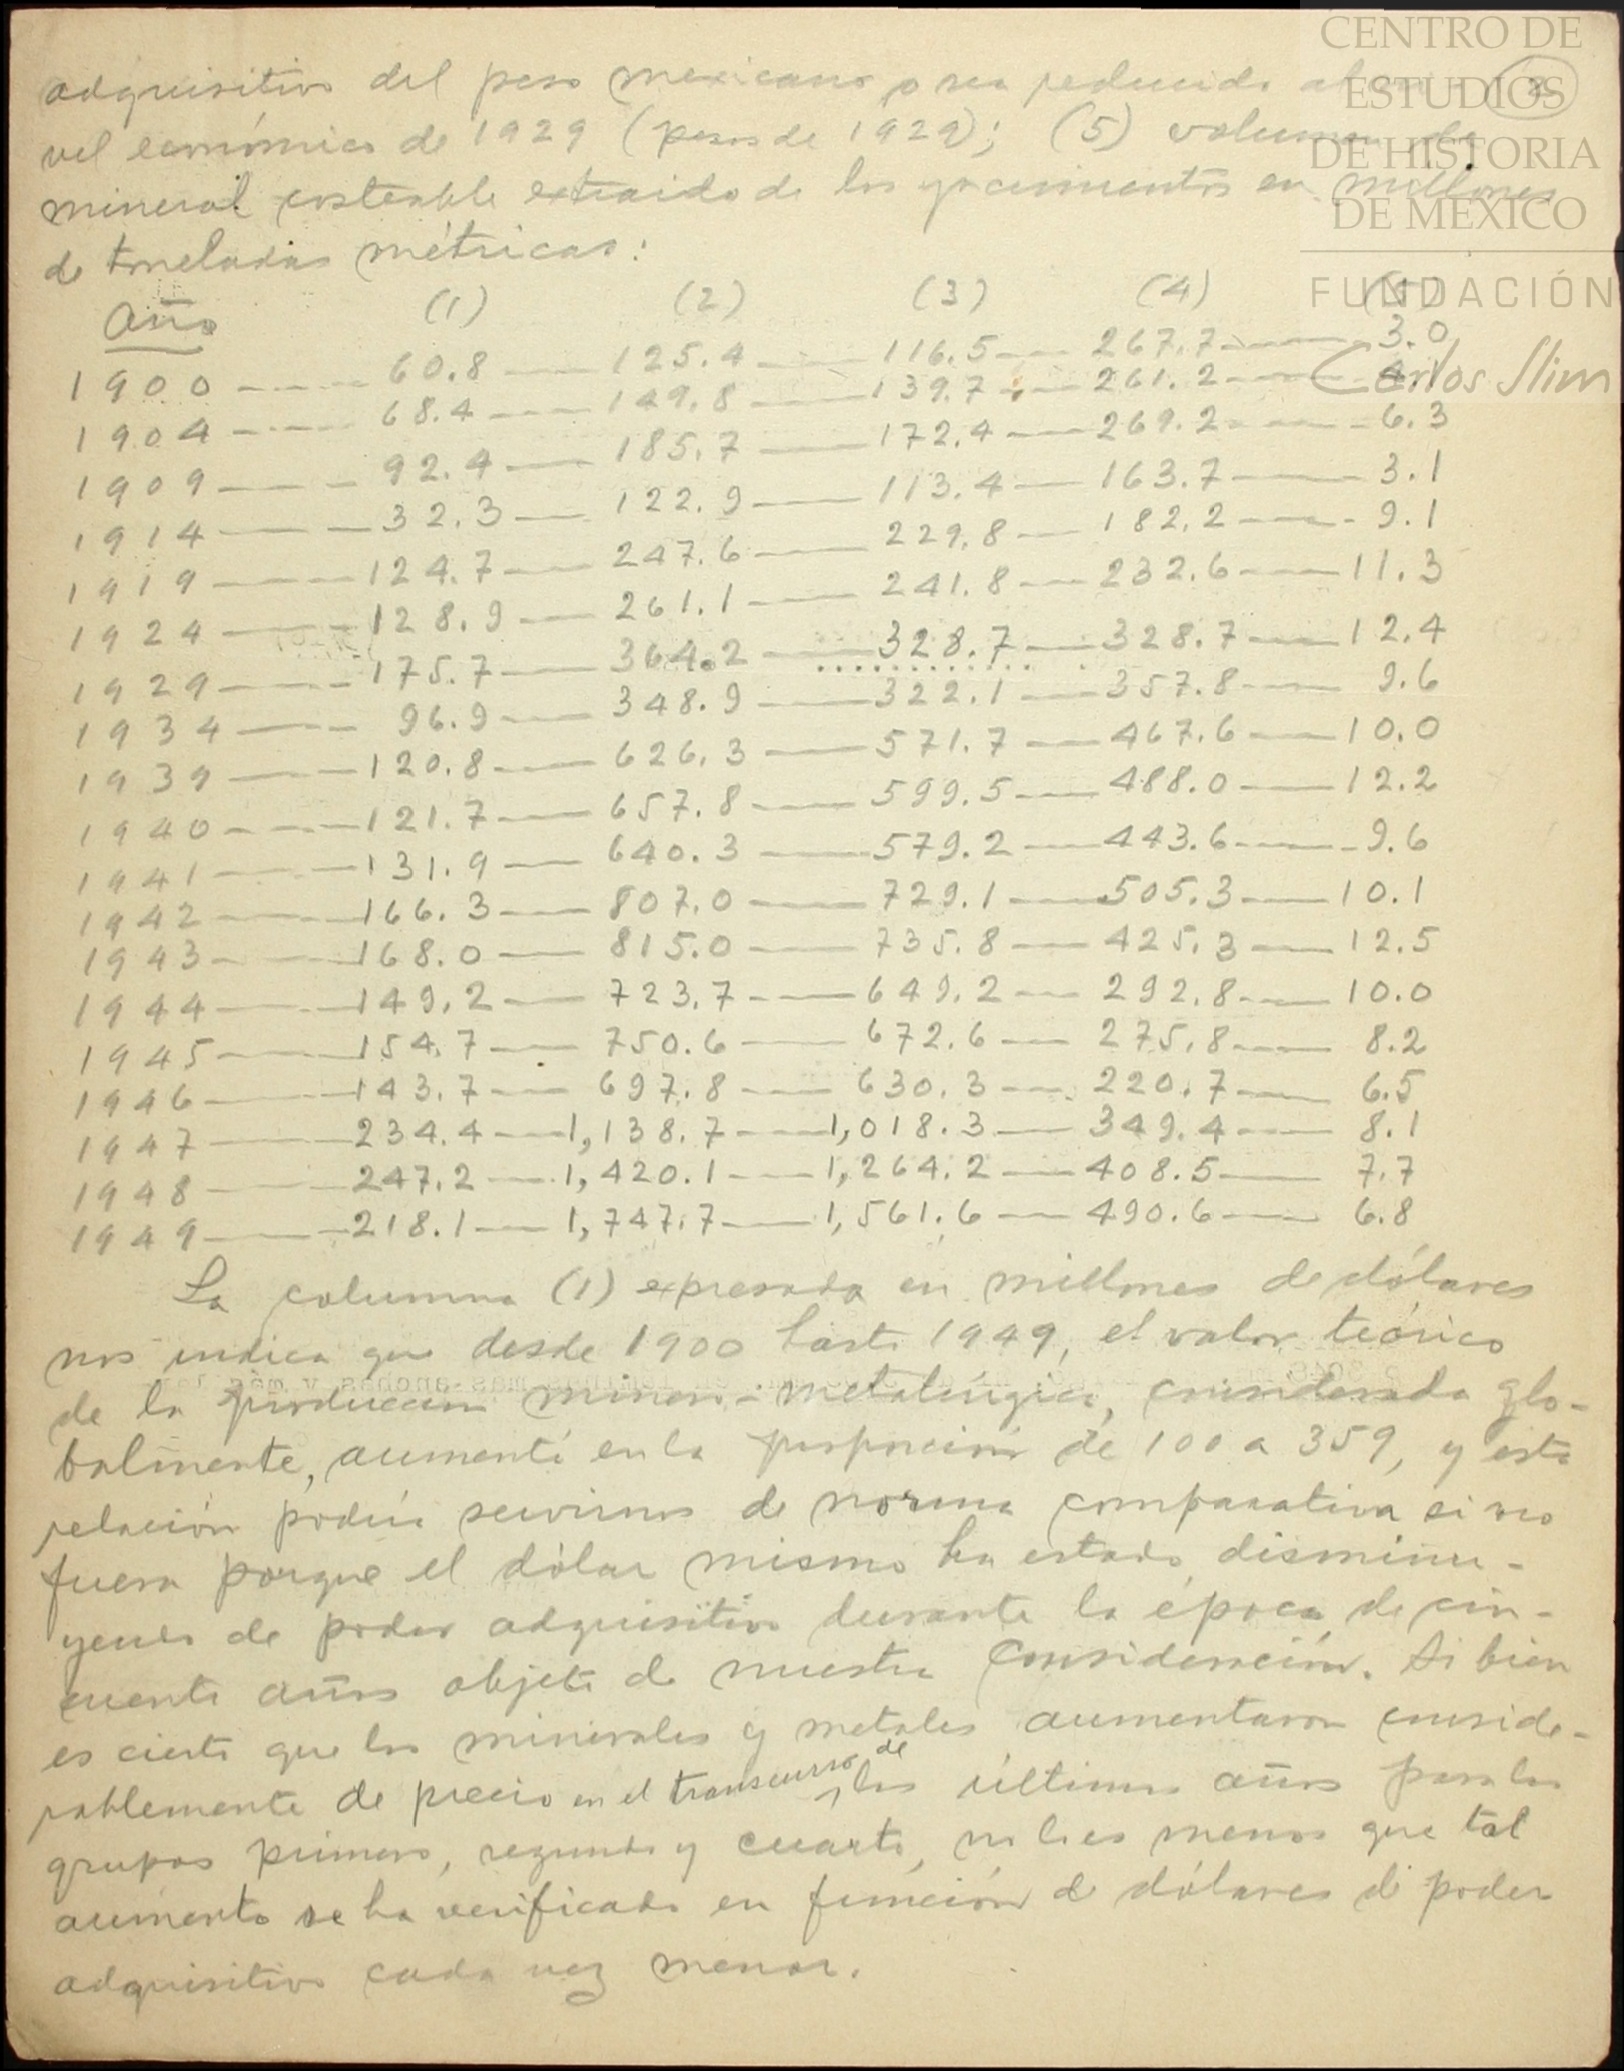 adquisitivo del peso mexicano o sea reducido al ni- 8
vel económico de 1929 (pesos de 1929); (5) volumen de
mineral costeable extraido de los yacimientos en millones
de toneladas métricas:
Año (1) (2) (3) (4) (5)
1900 60.8 125.4 116.5 267.7 3.0
1904 68.4 149.8 139.7 261.2
1909 92.4 185.7 172.4 269.2 6.3
1914 32.3 122.9 113.4 163.7 3.1
1919 124.7 247.6 229.8 182.2 9.1
1924 128.9 261.1 241.8 232.6 11.3
1929 175.7 364.2 328.7 328.7 12.4
1934 96.9 348.9 322.1 357.8 9.6
1939 120.8 626.3 571.7 467.6 10.0
1940 121.7 657.8 599.5 488.0 12.2
1941 131.9 640.3 579.2 443.6 9.6
1942 166.3 807.0 729.1 505.3 10.1
1943 168.0 815.0 735.8 425.3 12.5
1944 149.2 723.7 649.2 292.8 10.0
1945 154.7 750.6 672.6 275.8 8.2
1946 143.7 697.8 630.3 220.7 6.5
1947 234.4 1,138.7 1,018.3 349.4 8.1
1948 247.2 1,420.1 1,264.2 408.5 7.7
1949 218.1 1,747.7 1,561.6 490.6 6.8
La columna (1) expresada en millones de dólares
nos indica que desde 1900 hasta 1949, el valor teórico
de la producción minero-metalúrgica, considerada glo-
balmente, aumentó en la proporción de 100 a 359, y esta
relación podría servirnos de norma comparativa si no
fuera porque el dólar mismo ha estado disminu-
yendo de poder adquisitivo durante la época de cin-
cuenta años objeto de nuestra consideración. Si bien
es cierto que los minerales y metales aumentaron conside-
rablemente de precio en el transcurso de los últimos años para los
grupos primero, segundo y cuarto, no lo es menos que tal
aumento se ha verificado en función de dólares de poder
adquisitivo cada vez menor.
CENTRO DE
ESTUDIOS
DE HISTORIA
DE MEXICO
FUNDACIÓN
Carlos Slim